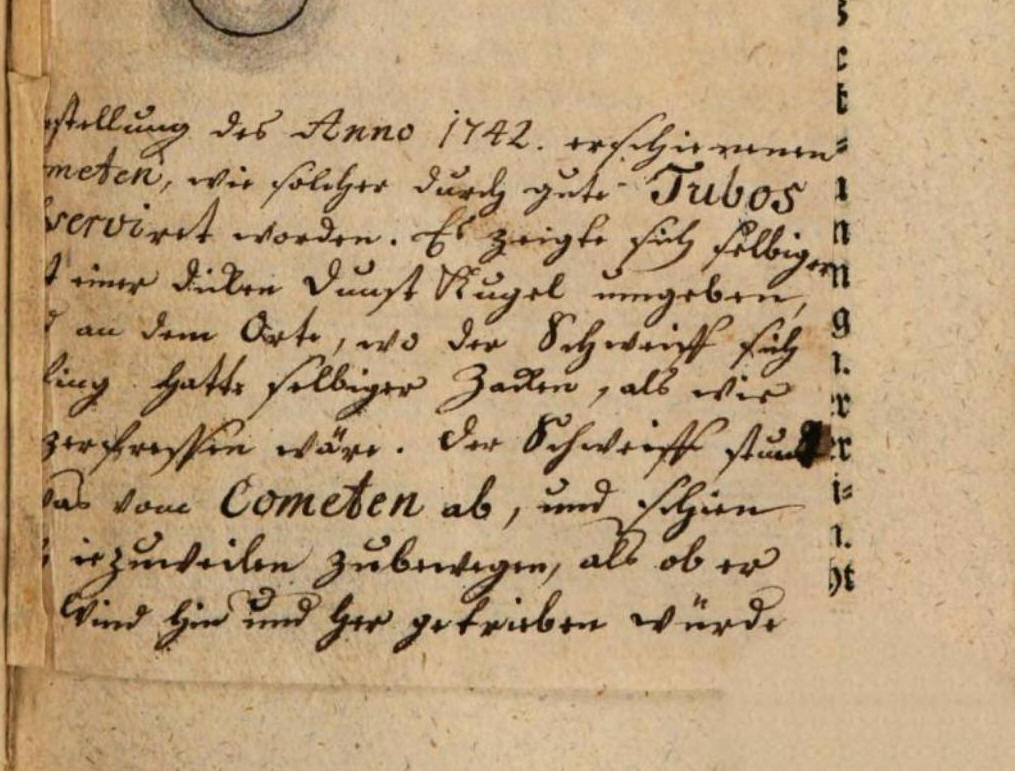 stellung des Anno 1742. erschienenen
meten, wie solcher durch gute Tubos
serviret worden. Es zeigte sich selbiger
t einer dicken Dunst Kugel umgeben,
d an dem Orte, wo der Schweiff sich
ling hatte selbiger Zacken, als wie
zerfressen wäre. Der Schweiff stund
was vom Cometen ab, und schien
ie zuweilen zubewegen, als ob er
Wind hin und her getrieben würde